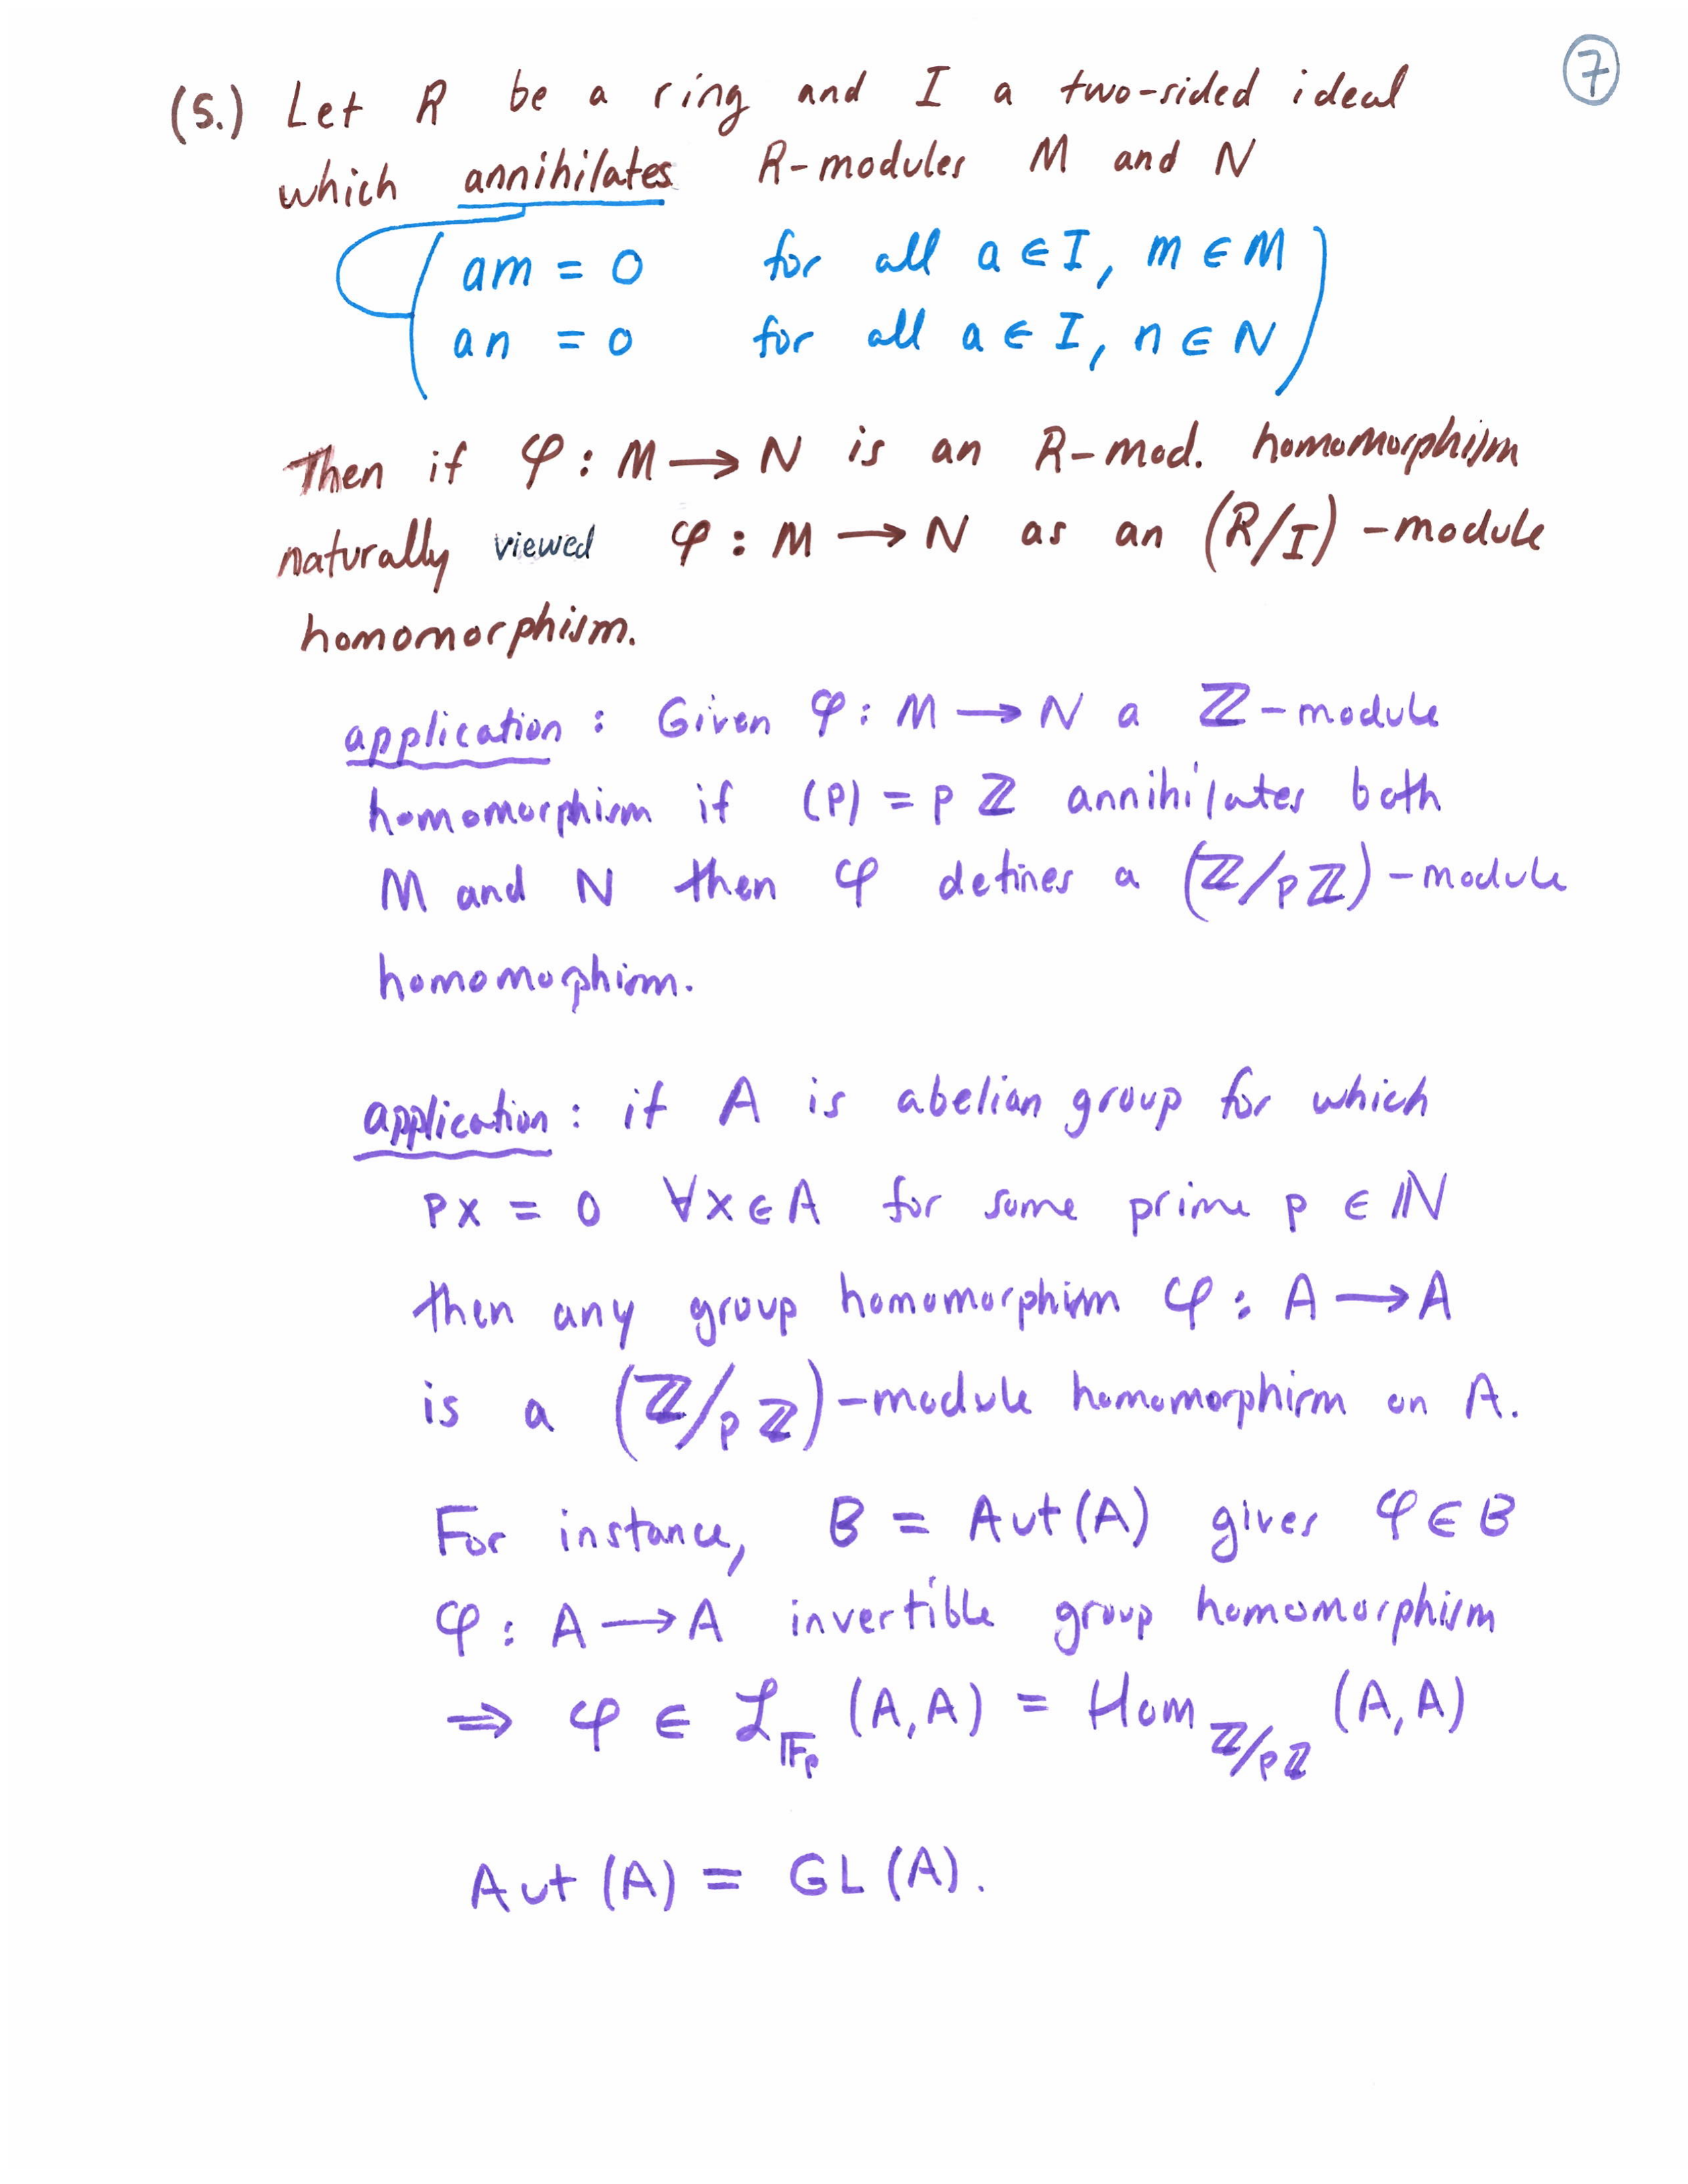 ⑦
(5.) Let R be a ring and I a two-sided ideal
which annihilates R-modules M and N
am = 0 for all a ∈ I, m ∈ M
an = 0 for all a ∈ I, n ∈ N
Then if φ : M → N is an R-mod. homomorphism
naturally viewed φ : M → N as an (R/I)-module
homomorphism.
application : Given φ : M → N a ℤ-module
homomorphism if (p) = pℤ annihilates both
M and N then φ defines a (ℤ/pℤ)-module
homomorphism.
application : if A is abelian group for which
px = 0 ∀x∈A for some prime p ∈ ℕ
then any group homomorphism φ : A → A
is a (ℤ/pℤ)-module homomorphism on A.
For instance, B = Aut(A) gives φ ∈ B
φ : A → A invertible group homomorphism
⇒ φ ∈ ℒ_𝔽p (A,A) = Hom_ℤ/pℤ (A,A)
Aut(A) = GL(A).